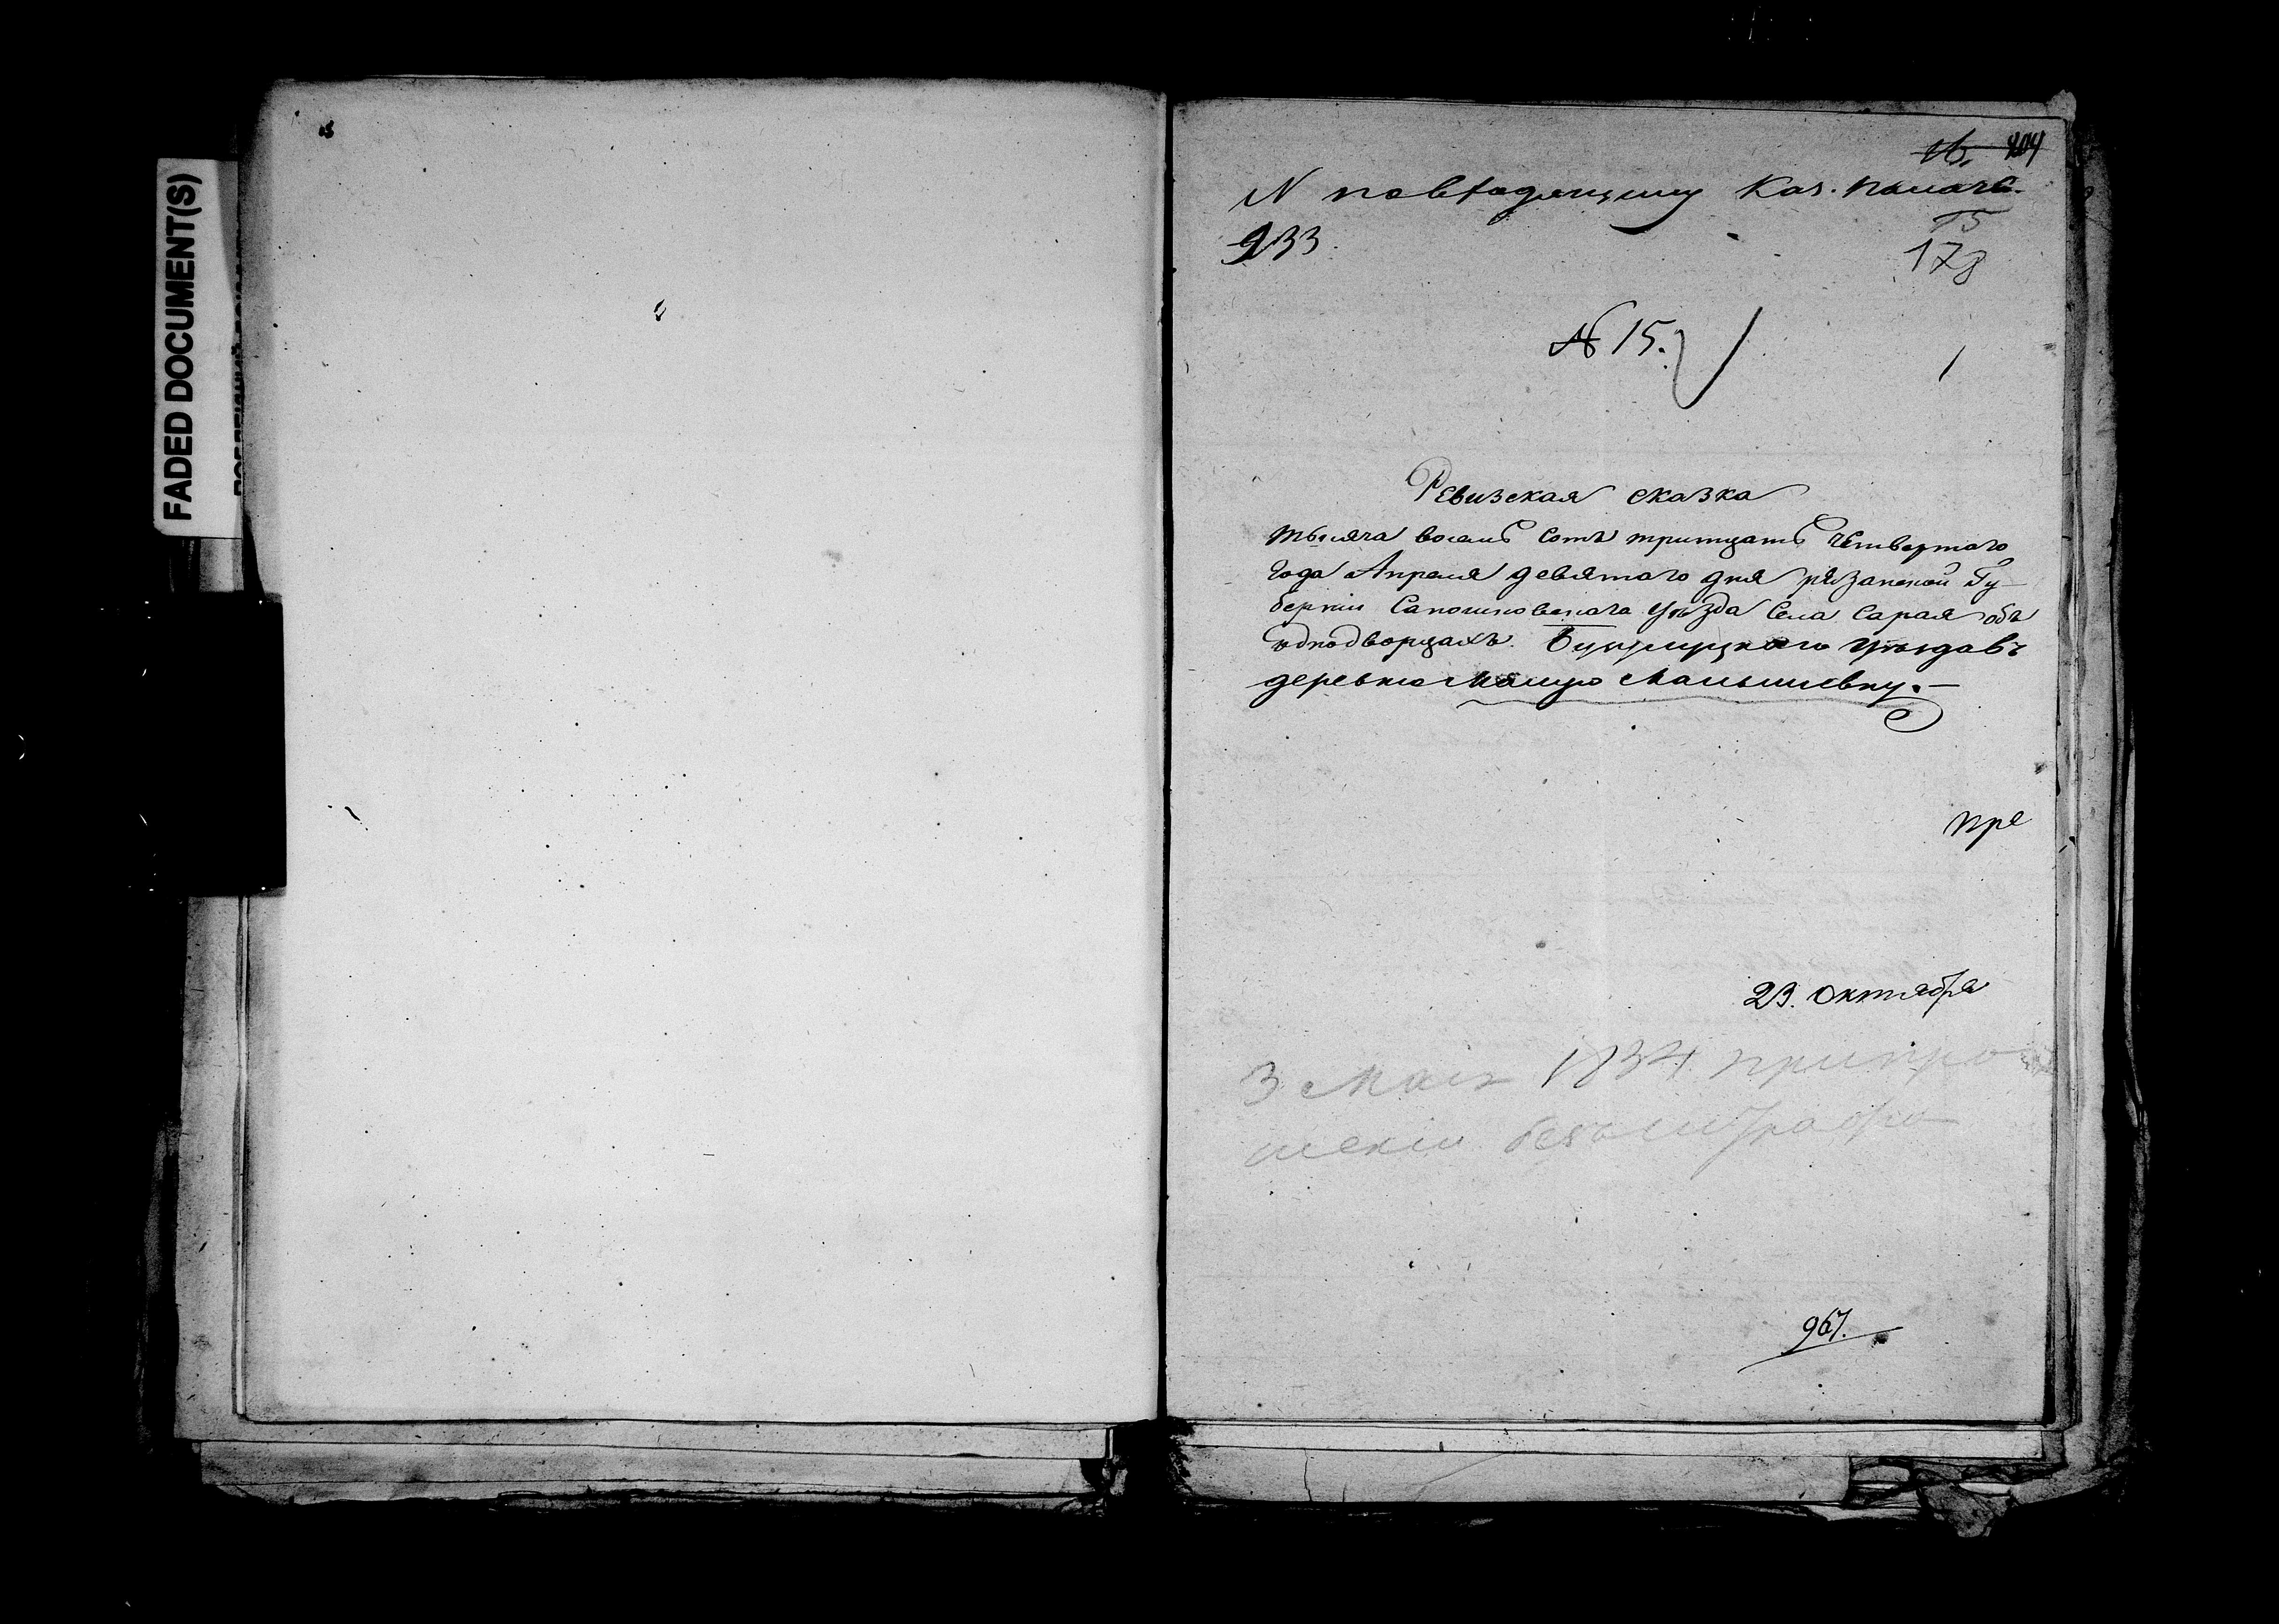 FADED DOCUMENT(S)
16. 404
N по входящему Каз. палатѣ
933.
15
178
№ 15.
Ревизская сказка
тысяча восемь сотъ тритцать четвертаго
года Апреля девятаго дня рязанской Гу-
берніи Сапожковскаго уѣзда Села Сарая объ
однодворцахъ. Бузулуцкаго уѣзда въ
деревню Малую Малышевку.-
пре
23. октября
3 Мая 1834 при про
шеніи безъ штрафа
967.